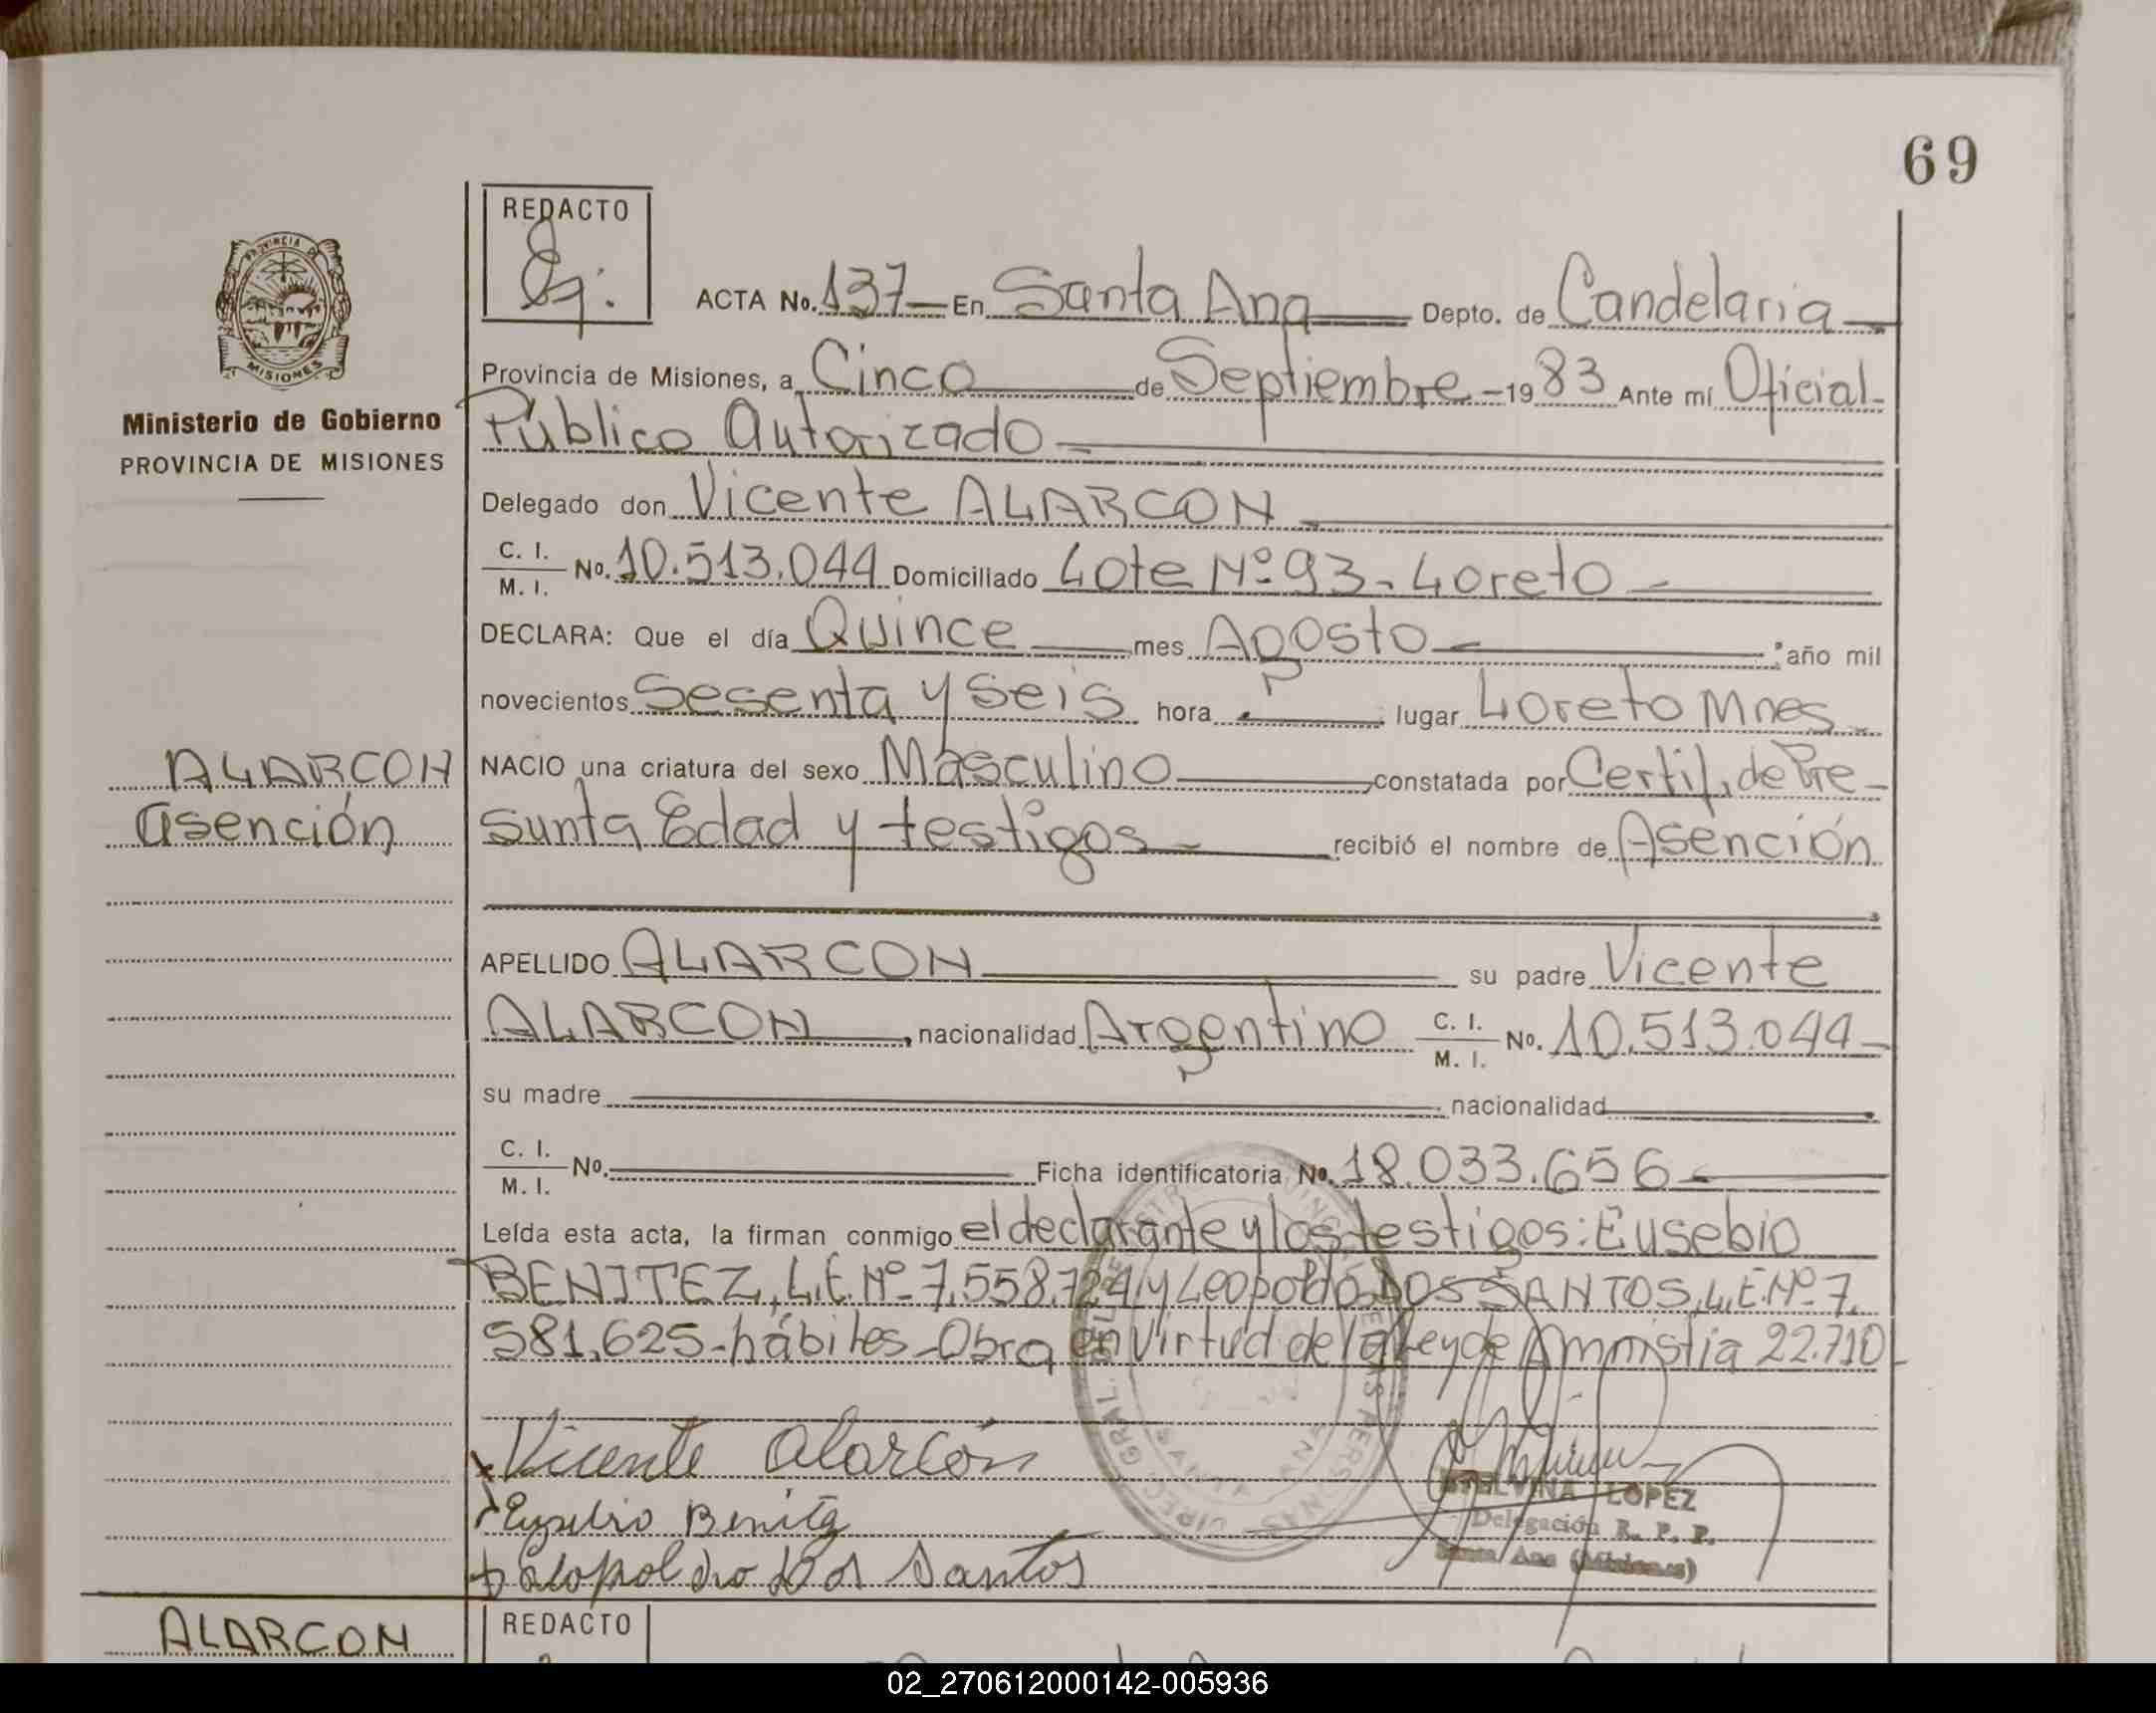 69
REDACTO
ACTA No. 137 En Santa Ana Depto. de Candelaria
Provincia de Misiones, a Cinco de Septiembre - 19 83 Ante mí Oficial
Público Autorizado
PROVINCIA DE
MISIONES
Ministerio de Gobierno
PROVINCIA DE MISIONES
Delegado don Vicente ALARCON
C. I. / M. I. No. 10.513.044 Domiciliado Lote Nº 93 - Loreto
DECLARA: Que el día Quince mes Agosto año mil
novecientos Sesenta y Seis hora lugar Loreto Mnes
ALARCON
Asención
NACIO una criatura del sexo Masculino constatada por Certif. de Pre-
sunta Edad y testigos recibió el nombre de Asención
APELLIDO ALARCON su padre Vicente
ALARCON, nacionalidad Argentino C. I. / M. I. No. 10.513.044
su madre nacionalidad
C. I. / M. I. No. Ficha identificatoria No. 18.033.656
Leída esta acta, la firman conmigo el declarante y los testigos: Eusebio
BENITEZ, L.E. Nº 7.558.724 y Leopoldo DOS SANTOS, L.E. Nº 7.
581.625 - hábiles - Obra en Virtud de la Ley de Amnistia 22.710
Vicente Alarcón
Eusebio Benitez
Leopoldo Dos Santos
LOPEZ
Delegación R. P. P.
Santa Ana (Misiones)
ALARCON
REDACTO
02_270612000142-005936